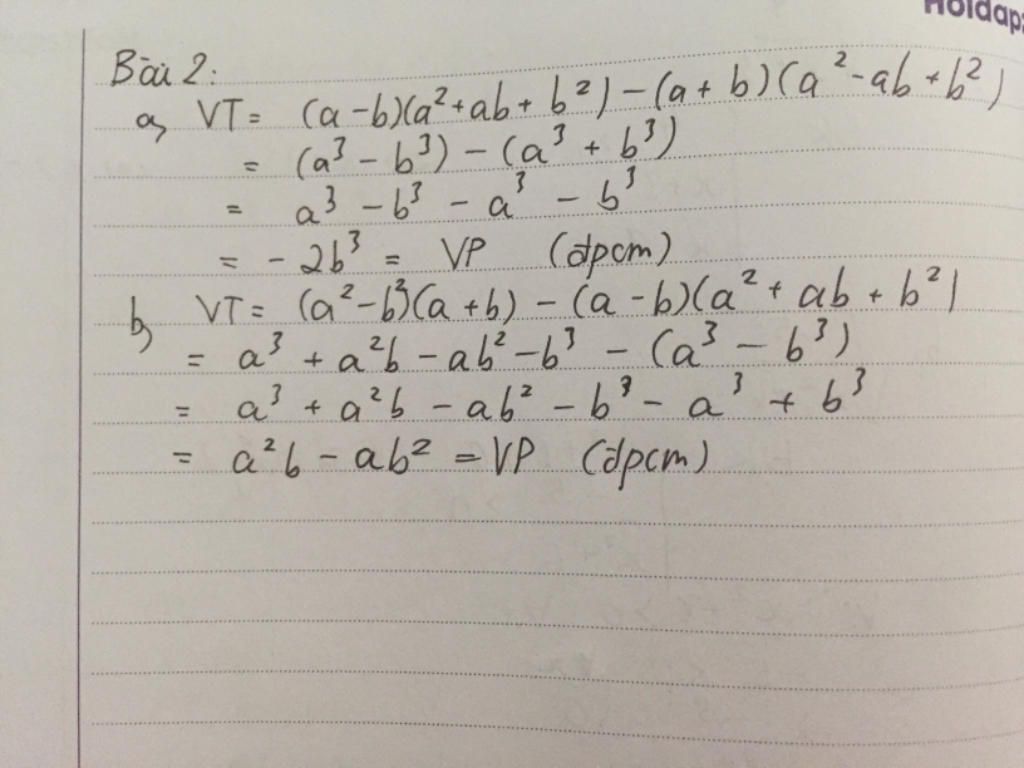 Hoidap
Bài 2:
a, VT = (a - b)(a² + ab + b²) - (a + b)(a² - ab + b²)
= (a³ - b³) - (a³ + b³)
= a³ - b³ - a³ - b³
= - 2b³ = VP (đpcm)
b, VT = (a² - b²)(a + b) - (a - b)(a² + ab + b²)
= a³ + a²b - ab² - b³ - (a³ - b³)
= a³ + a²b - ab² - b³ - a³ + b³
= a²b - ab² = VP (đpcm)